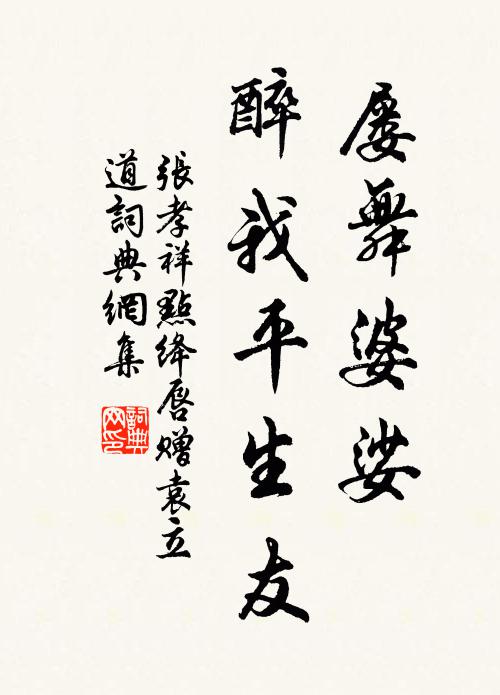 屢舞婆娑
醉我平生友
張孝祥點絳唇贈袁立
道詞典網集
詞典网印